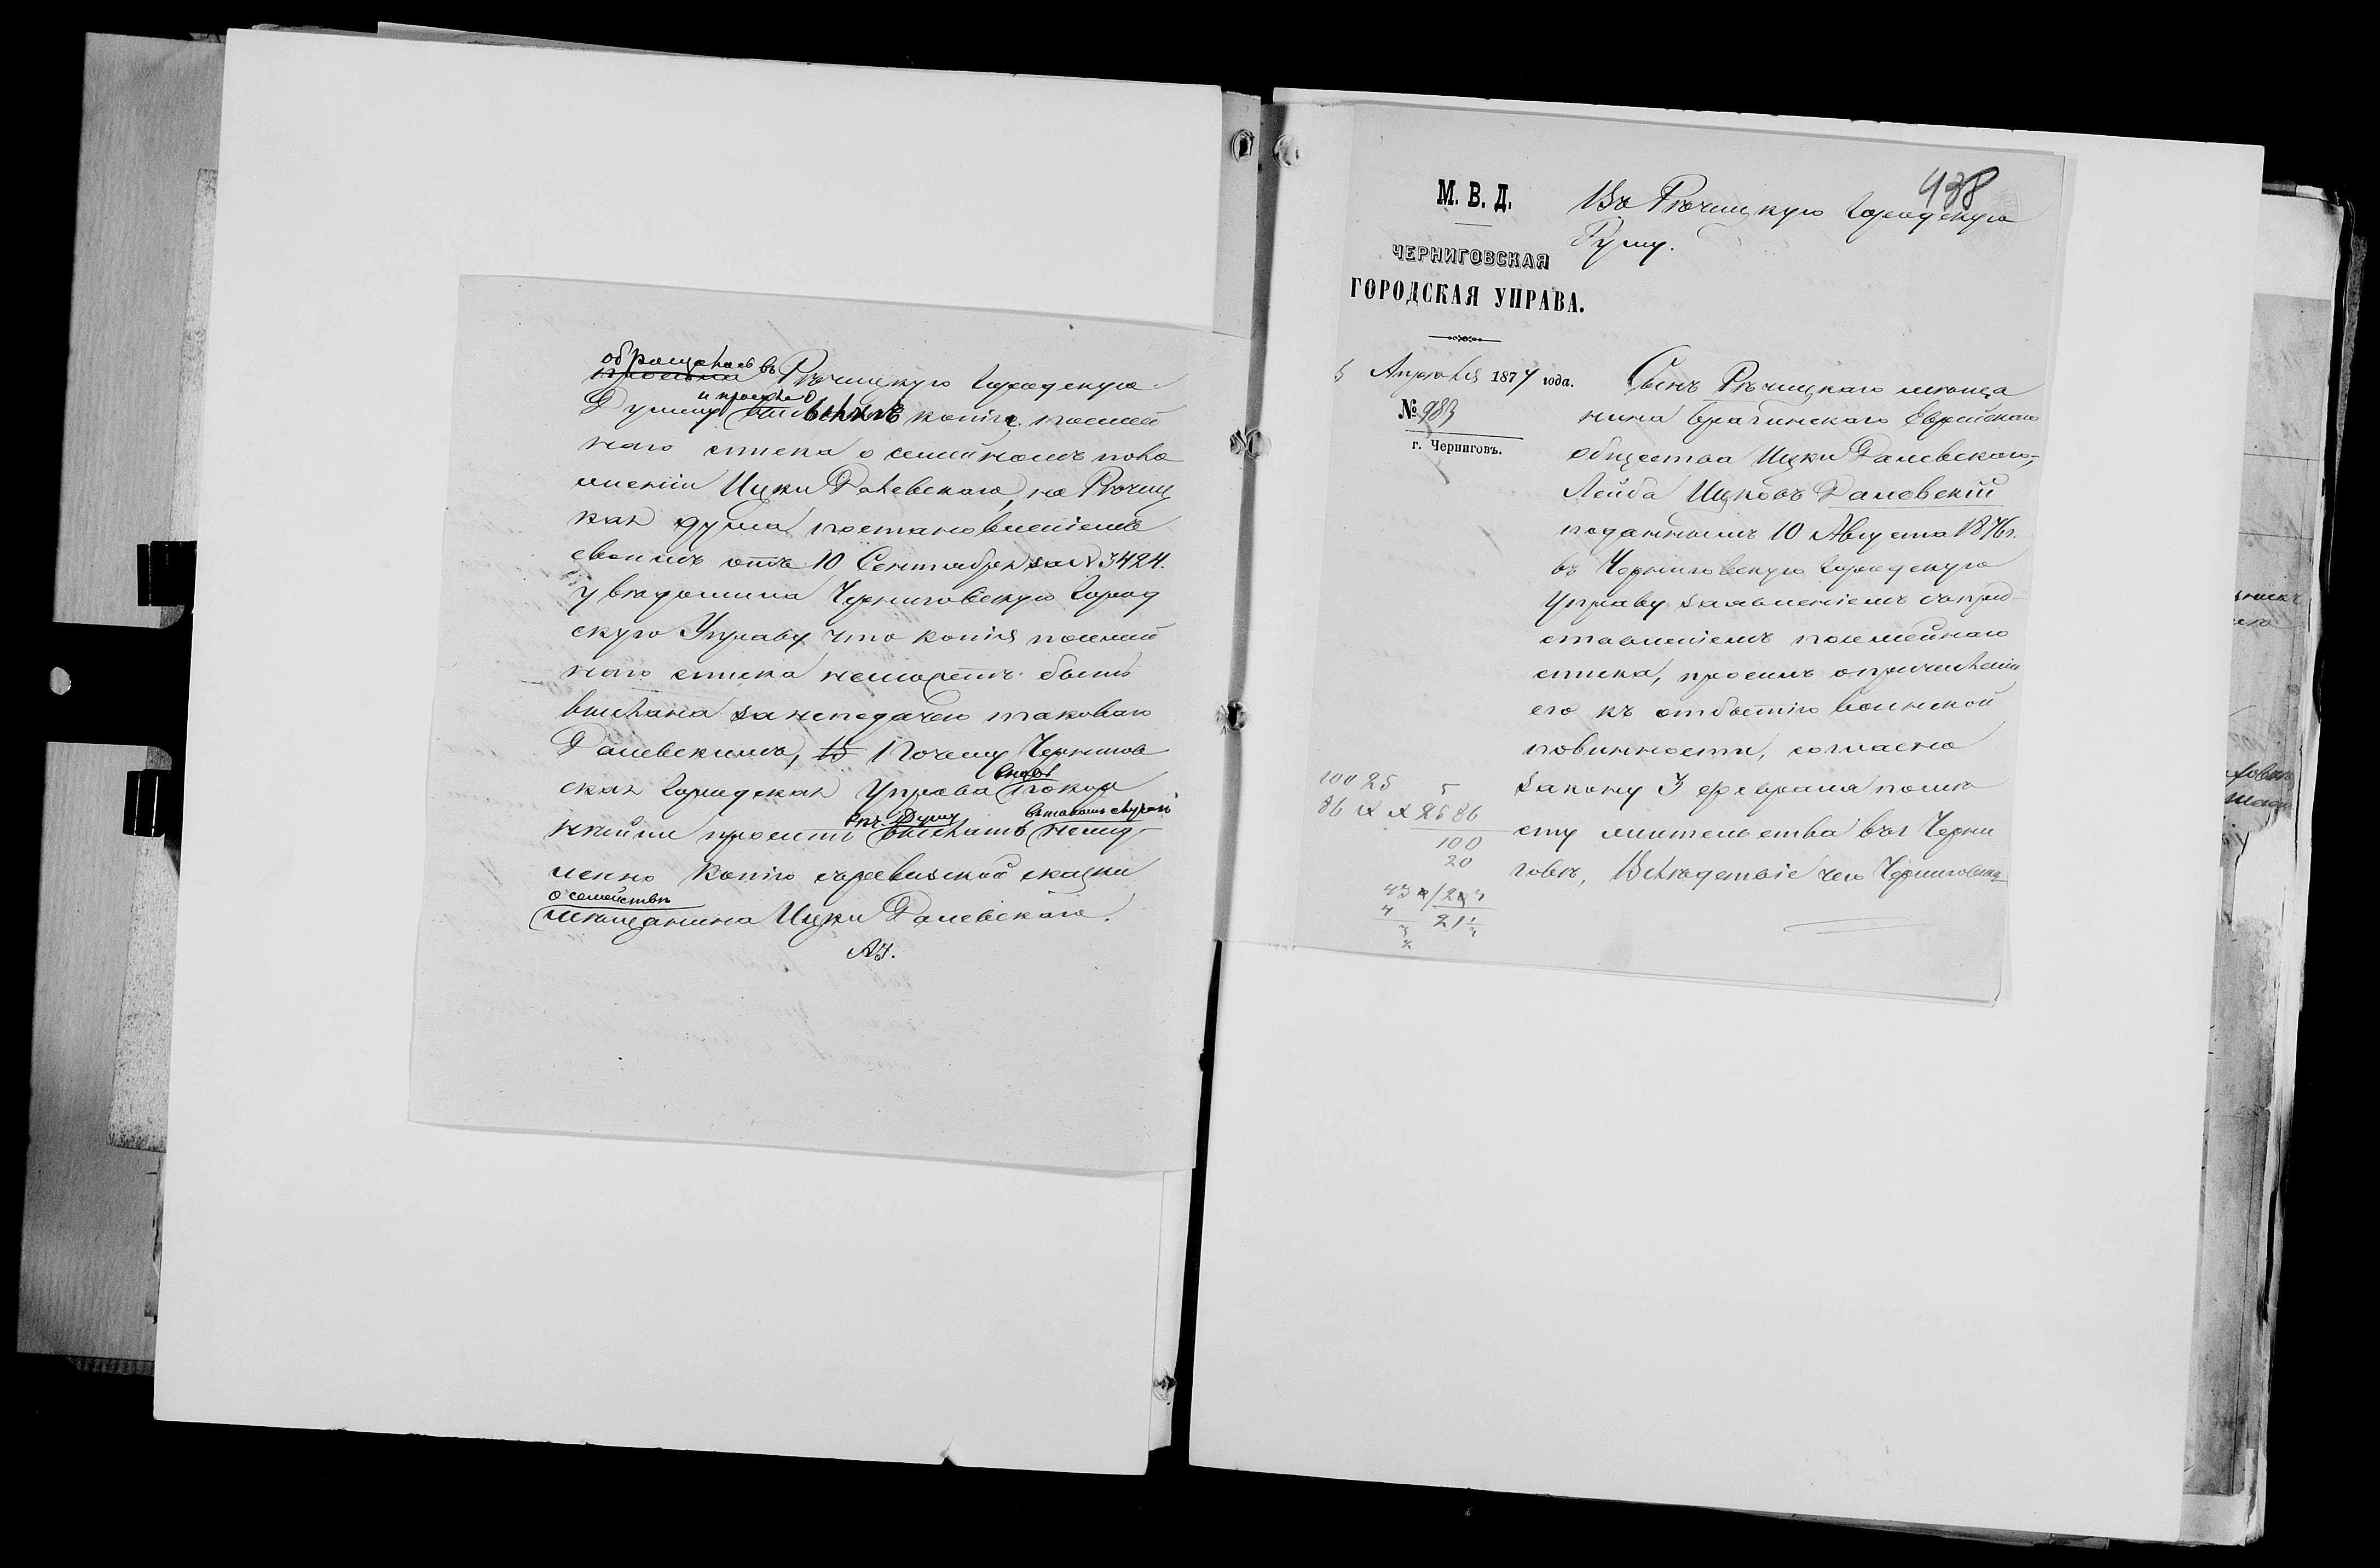 обращалась въ
просила Рѣчицкую Городскую
и просила о
Думу высылкѣ копіи посемей
наго списка о семейномъ поло
женіи Ицки Далевскаго, но Рѣчиц
кая дума постановленіемъ
своимъ отъ 10 Сентября за № 3424.
увѣдомила Черниговскую Город
скую Управу что копія посемей
наго списка неможетъ быть
выслана за неподачею таковаго
Далевскимъ, Почему Чернигов
вновь
ская Городская Управа покор
Думу въ такомъ случаѣ
нѣйше проситъ выслать немед
ленно копію съ ревизской сказки
о семействѣ
мѣщанина Ицки Далевскаго.
438
М. В. Д.
ЧЕРНИГОВСКАЯ
ГОРОДСКАЯ УПРАВА.
Въ Рѣчицкую Городскую
Думу.
5 Апрѣля 1877 года.
№ 983
г. Черниговъ.
Сынъ Рѣчицкаго мѣща
нина Брагинскаго Еврейскаго
общества Ицки Далевскаго,
Лейба Ицковъ Далевскій
поданнымъ 10 Августа 1876 г.
въ Черниговскую Городскую
Управу заявленіемъ съ пред
ставленіемъ посемейнаго
списка, просилъ опричисленіи
его къ отбытію воинской
повинности, согласно
закону 3 февраля помѣ
сту жительства въ г Черни
говѣ, Вслѣдствіе чего Черниговская
100 25 5
86 25 86
100
20